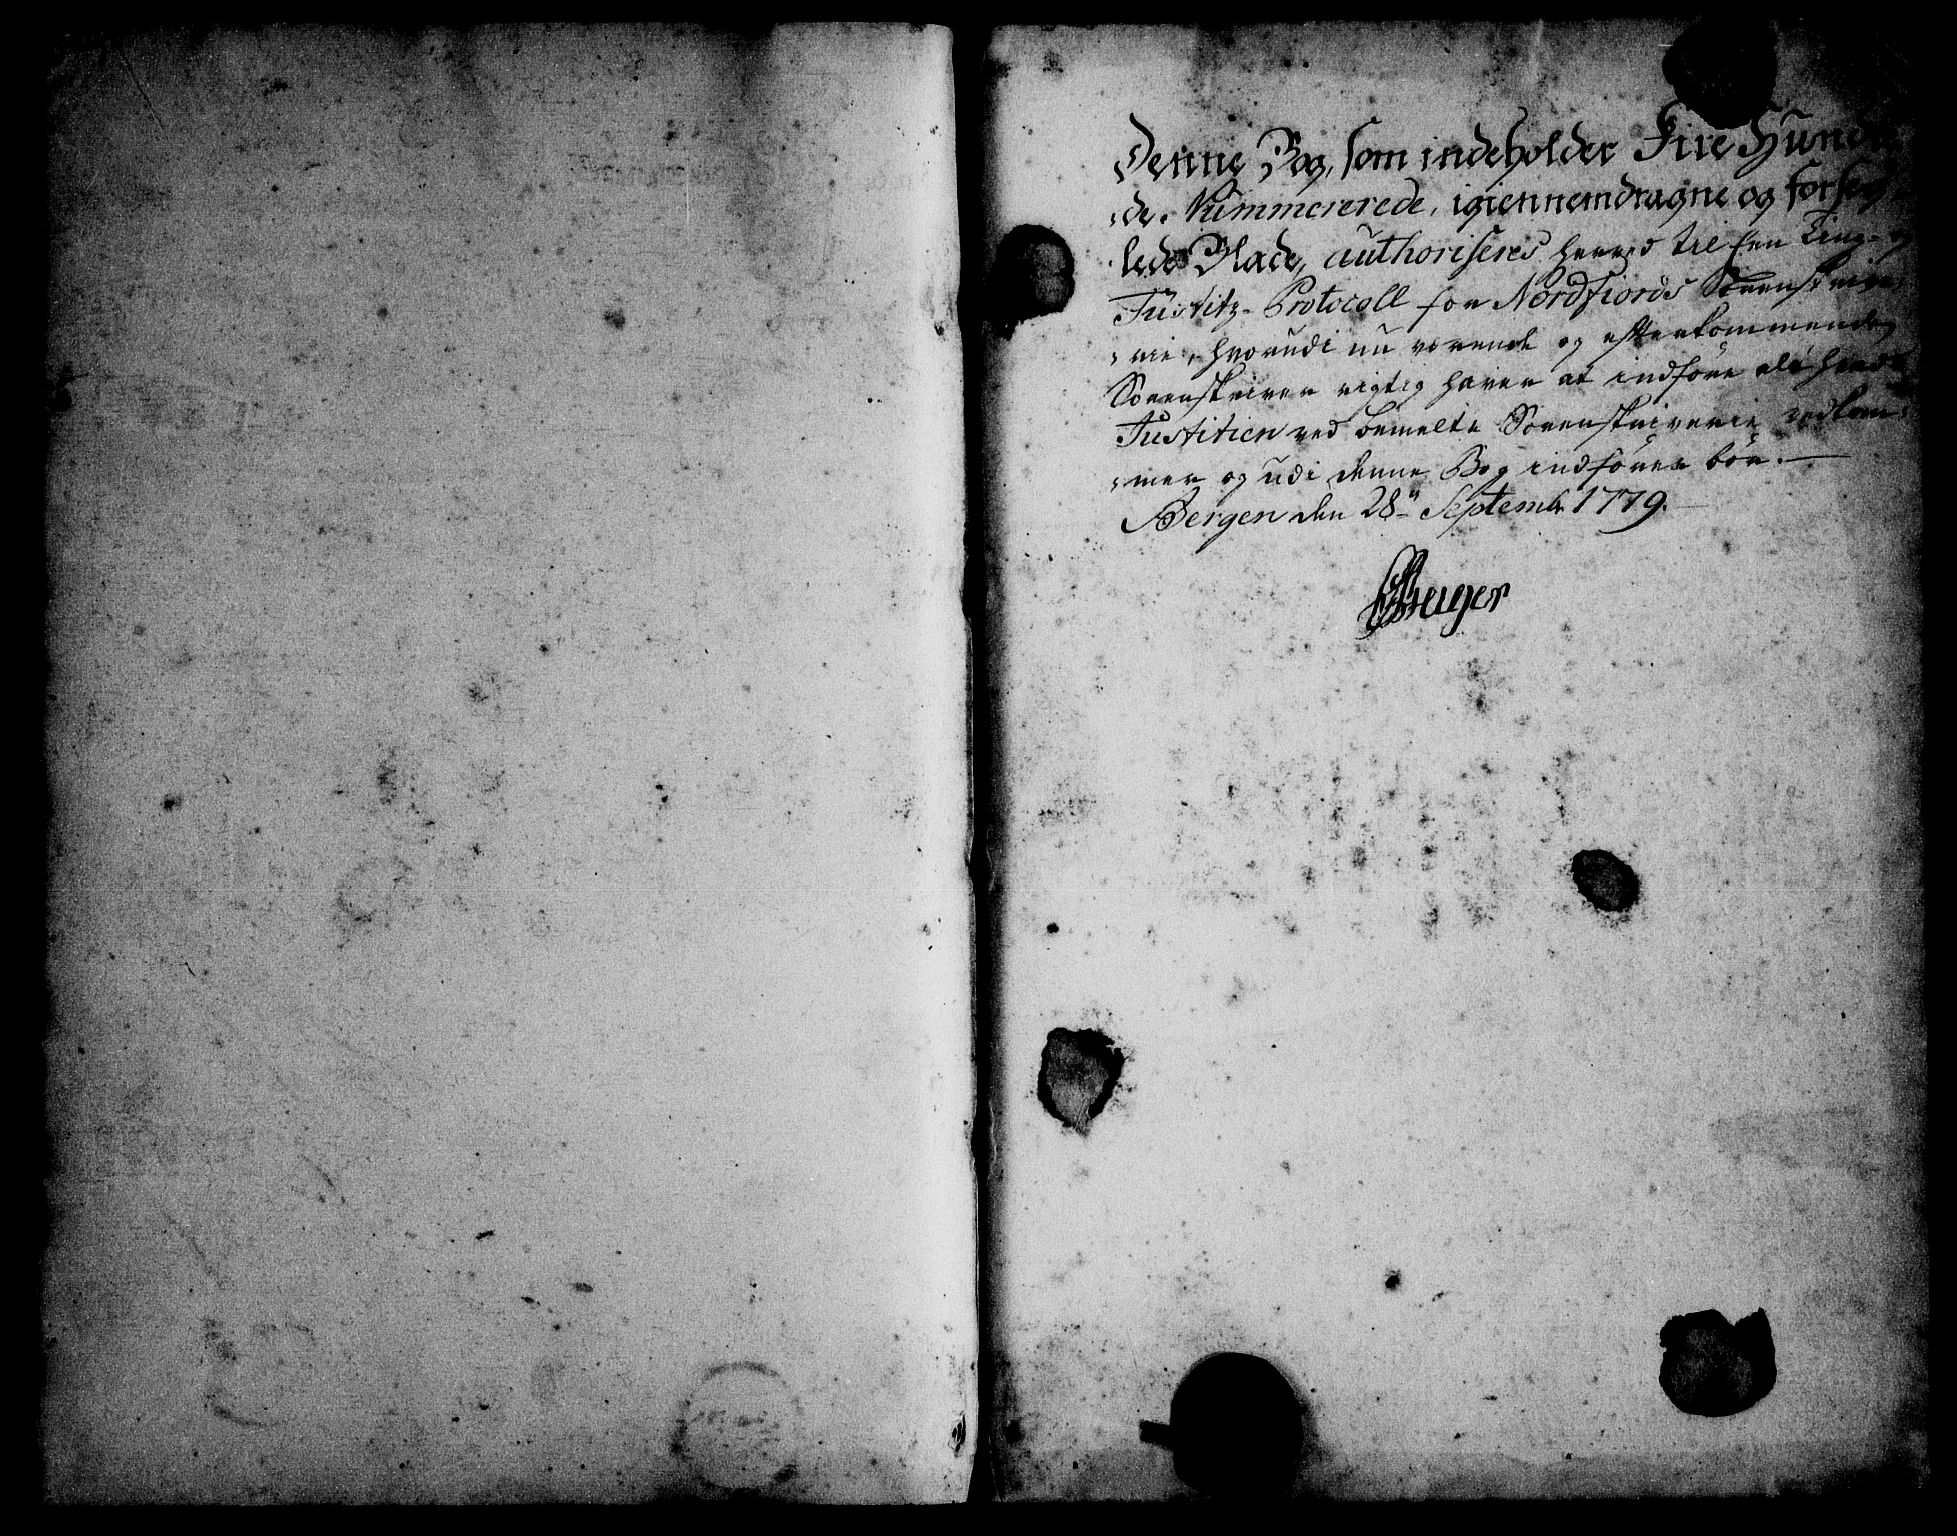 Denne Bog, som indeholder Fire Hundre
:de, Nummererede, igiennemdragne og forseg:
:lede Blade, authoriseres herved til en Ting- og
Justitz-Protocoll for Nordfiords Sorenskrive:
:rie, hvorudi nu værende og efterkommende
Sorenskriver rigtig haver at indføre alt hvad
Justitien ved bemelte Sorenskriverie vedkom:
:mer og udi denne Bog indføres bør.
Bergen den 28n Septembr 1779.